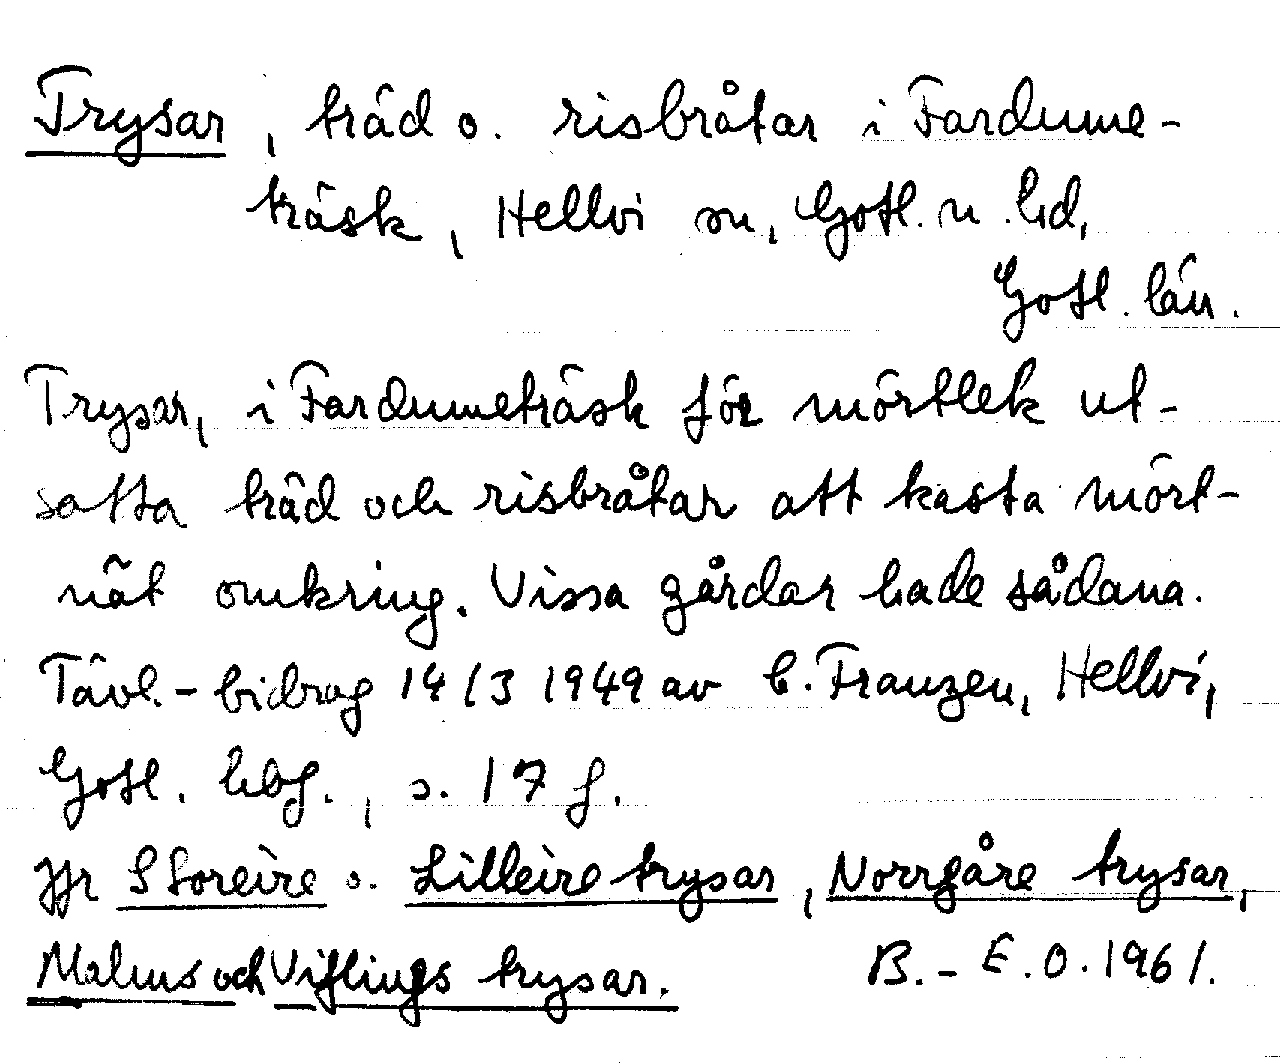 Trysar, träd o. risbråtar i Fardume-
träsk, Hellvi sn, Gotl. n. hd,
Gotl. län.
Trysar, i Fardumeträsk för mörtlek ut-
satta träd och risbråtar att kasta mört-
nät omkring. Vissa gårdar hade sådana.
Tävl.-bidrag 14/3 1949 av C. Franzen, Hellvi,
Gotl. hbf., s. 17 f.
Jfr Storeire o. Lilleire trysar, Norrgåre trysar,
Malms och Viflings trysar. B.-E.O. 1961.